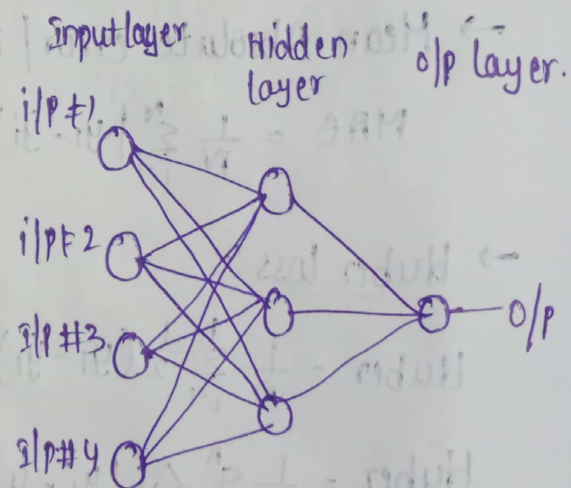 Input layer
Hidden layer
O/P layer.
i/p #1
i/p #2
I/p #3
I/p #4
O/P